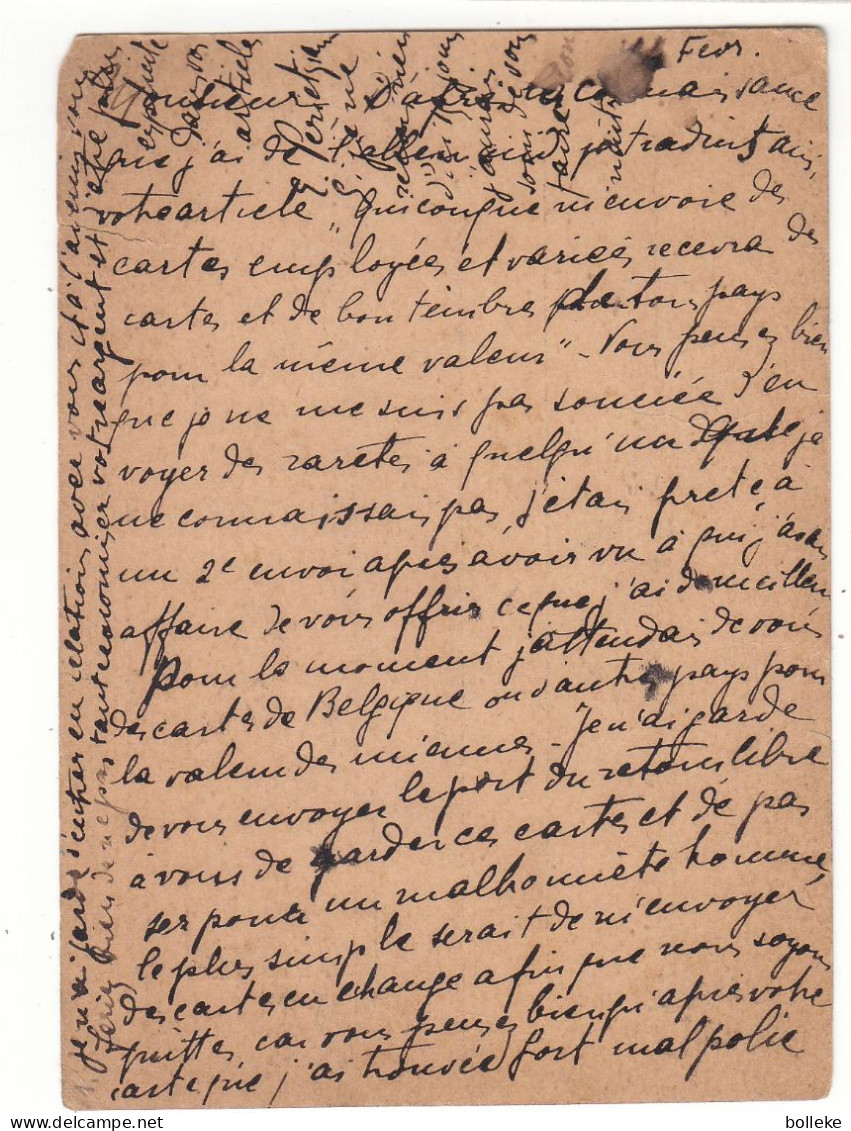 Fevr.
Monsieur D'après la connaissance
que j'ai de l'allemand je traduis ainsi
votre article „Quiconque m'envoie des
cartes employées et variées recevra des
cartes et de bon timbres de tous pays
pour la même valeur" - Vous pensez bien
que je ne me suis pas souciée d'en
voyer des raretés à quelqu'un que je
ne connaissais pas, j'étais prete à
un 2e envoi après avoir vu à qui j'avais
affaire de vous offrir ce que j'ai de meilleur
Pour le moment j'attendais de vous
des cartes de Belgique ou d'autres pays pour
la valeur des miennes - Je n'ai garde
de vous envoyer le port du retour libre
à vous de garder ces cartes et de pas
ser pour un malhonnête homme,
le plus simple serait de m'envoyer
des cartes en échange afin que nous soyons
quittes, car vous pensez bien qu'après votre
carte que j'ai trouvée fort mal polie
je n'ai garde d'entrer en relations avec vous et à l'avenir vous
feriez bien de ne pas tant économiser votre argent et d'être plus
explicite
dans vos
articles